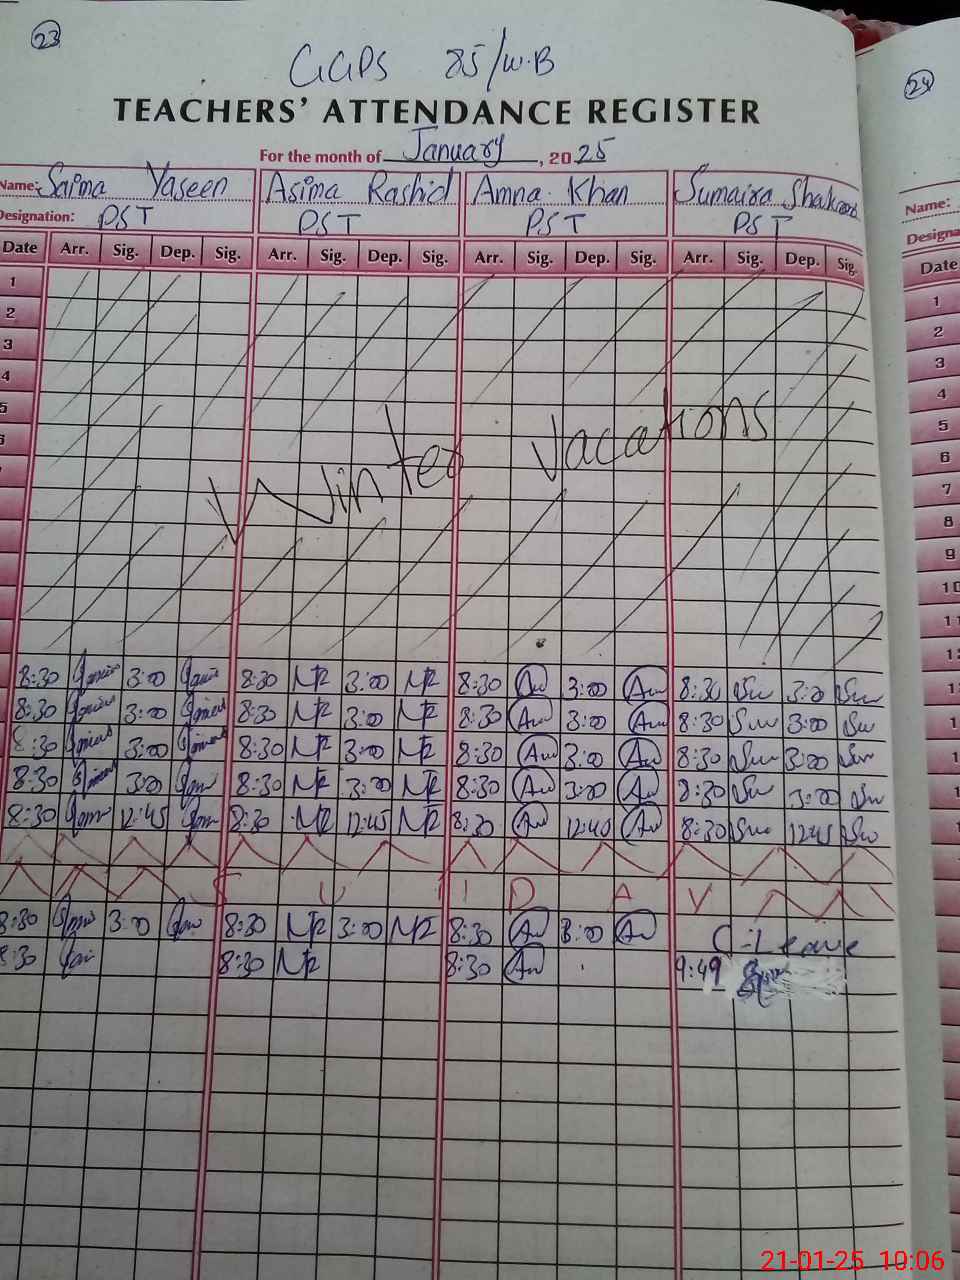 23
GGPS 85/W.B
24
TEACHERS' ATTENDANCE REGISTER
For the month of January, 2025
Name: Saima Yaseen Asima Rashid Amna Khan Sumaira
Name:
Designation: PST PST PST PST
Designa
Date Arr. Sig. Dep. Sig. Arr. Sig. Dep. Sig. Arr. Sig. Dep. Sig. Arr. Sig. Dep. Sig.
Date
1 1
2 2
3 3
4 4
5 5
6
7
8
9
10
11
Winter vacations
8:30 3:00 8:30 NR 3:00 NR 8:30 Am 3:00 Am 8:30 Su 3:00 Su
8:30 3:00 8:30 NR 3:00 NR 8:30 Am 3:00 Am 8:30 Su 3:00 Su
8:30 3:00 8:30 NR 3:00 NR 8:30 Am 3:00 Am 8:30 Su 3:00 Su
8:30 3:00 8:30 NR 3:00 NR 8:30 Am 3:00 Am 8:30 Su 3:00 Su
8:30 12:45 8:30 NR 12:45 NR 8:30 Am 12:45 Am 8:30 Su 12:45 Su
S U N D A Y
8:30 3:00 8:30 NR 3:00 NR 8:30 Am 3:00 Am C-Leave
8:30 8:30 NR 8:30 Am 9:49
21-01-25 10:06